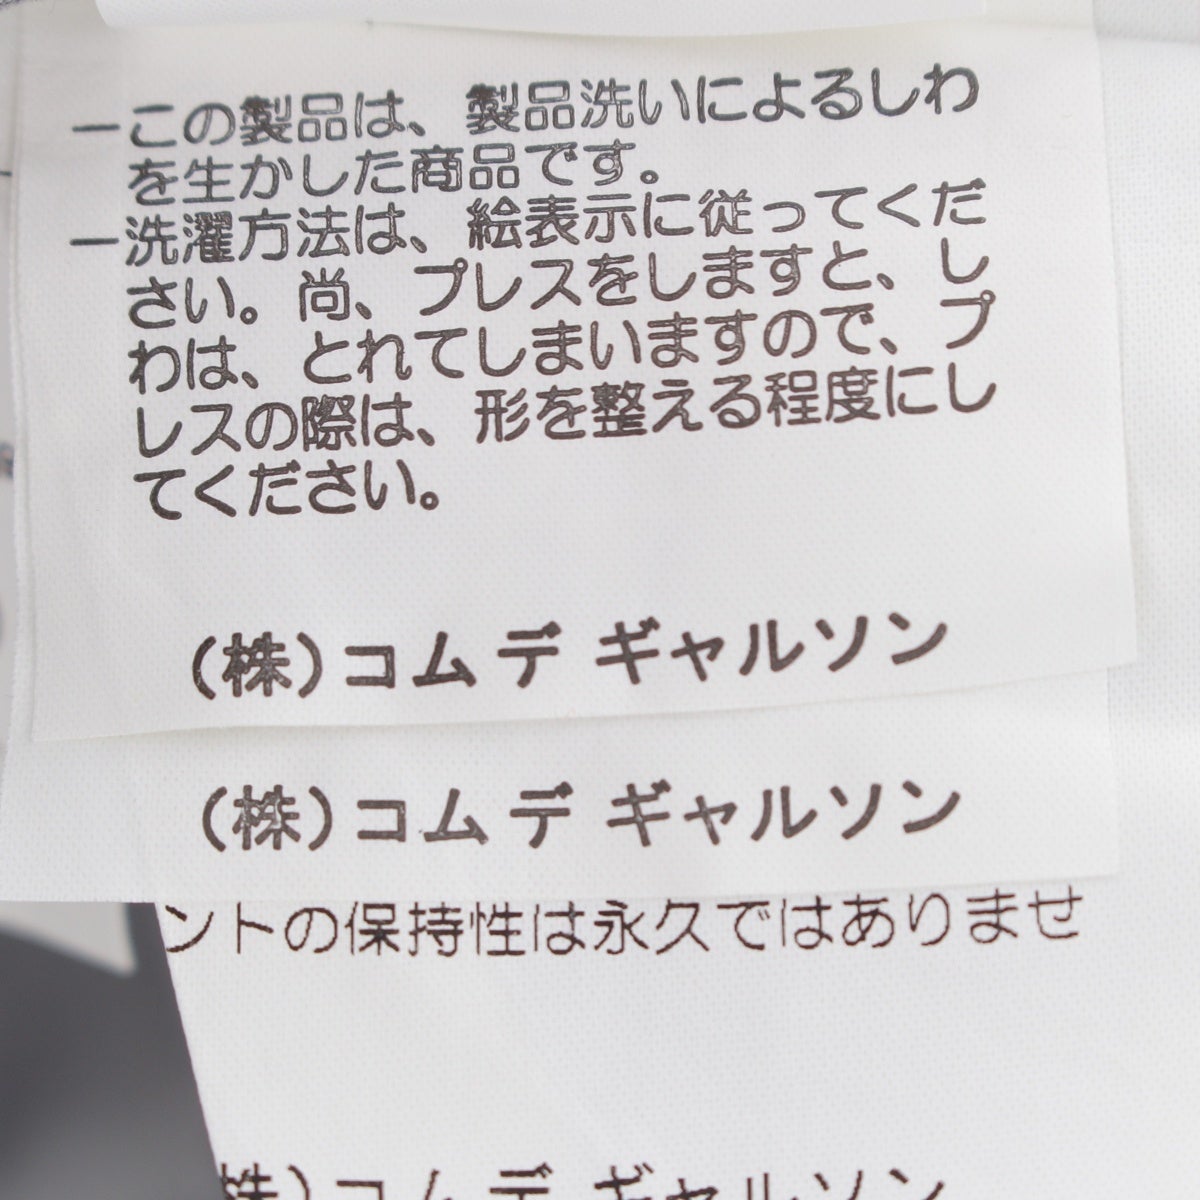 ーこの製品は、製品洗いによるしわ
を生かした商品です。
ー洗濯方法は、絵表示に従ってくだ
さい。尚、プレスをしますと、し
わは、とれてしまいますので、プ
レスの際は、形を整える程度にし
てください。
(株)コム デ ギャルソン
(株)コム デ ギャルソン
ントの保持性は永久ではありませ
(株)コム デ ギャルソン